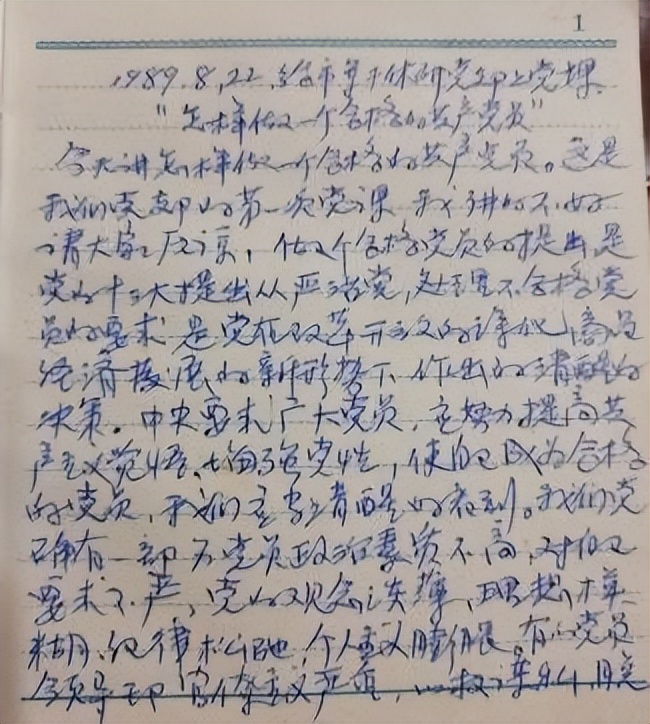 1
1989.8.22.给市军干休所党部上党课
"怎样做一个合格的共产党员"
今天讲怎样做一个合格的共产党员。这是
我们党部的第一次党课 我讲的不好
请大家原谅，做个合格党员的提出，是
党的十三大提出从严治党，处理不合格党
员的要求 是党在改革开放的 商品
经济发展的新形势下 作出的清醒的
决策。中央要求广大党员，应努力提高共
产主义觉悟、增强党性，使自己成为合格
的党员，我们应当清醒的看到。我们党
确有一部分党员政治素质不高，对自己
要求不严，党的观念淡薄，理想模
糊、纪律松弛，个人主义膨胀。有的党员
领导 官僚主义严重，以权谋私